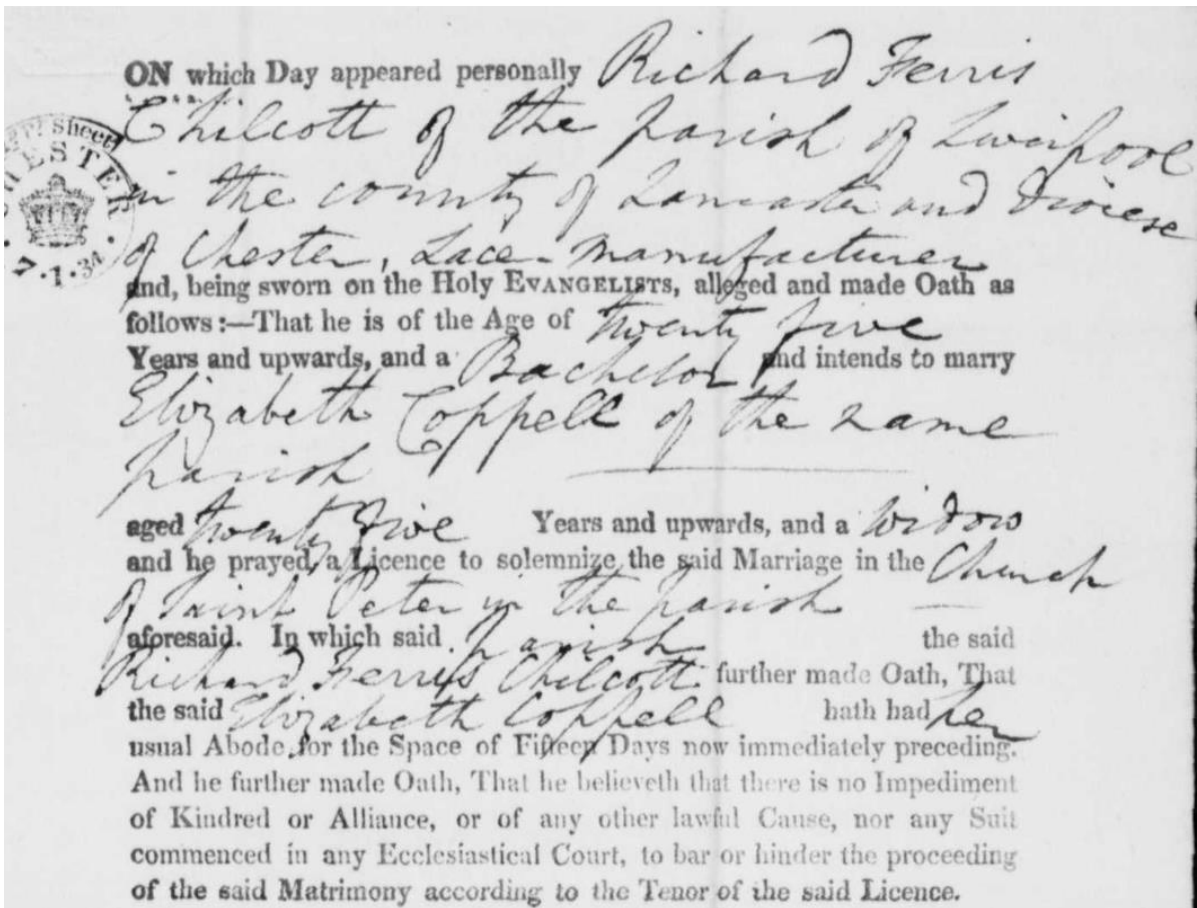 ON which Day appeared personally Richard Ferris
Chilcott of the parish of Liverpool
in the county of Lancaster and Diocese
of Chester, Lace-manufacturer
and, being sworn on the Holy EVANGELISTS, alleged and made Oath as
follows:—That he is of the Age of twenty five
Years and upwards, and a Bachelor and intends to marry
Elizabeth Coppell of the same
parish
aged twenty five Years and upwards, and a Widow
and he prayed, a Licence to solemnize the said Marriage in the Church
of Saint Peter in the parish
aforesaid. In which said parish the said
Richard Ferris Chilcott further made Oath, That
the said Elizabeth Coppell hath had her
usual Abode, for the Space of Fifteen Days now immediately preceding.
And he further made Oath, That he believeth that there is no Impediment
of Kindred or Alliance, or of any other lawful Cause, nor any Suit
commenced in any Ecclesiastical Court, to bar or hinder the proceeding
of the said Matrimony according to the Tenor of the said Licence.
sheet
7.1.34